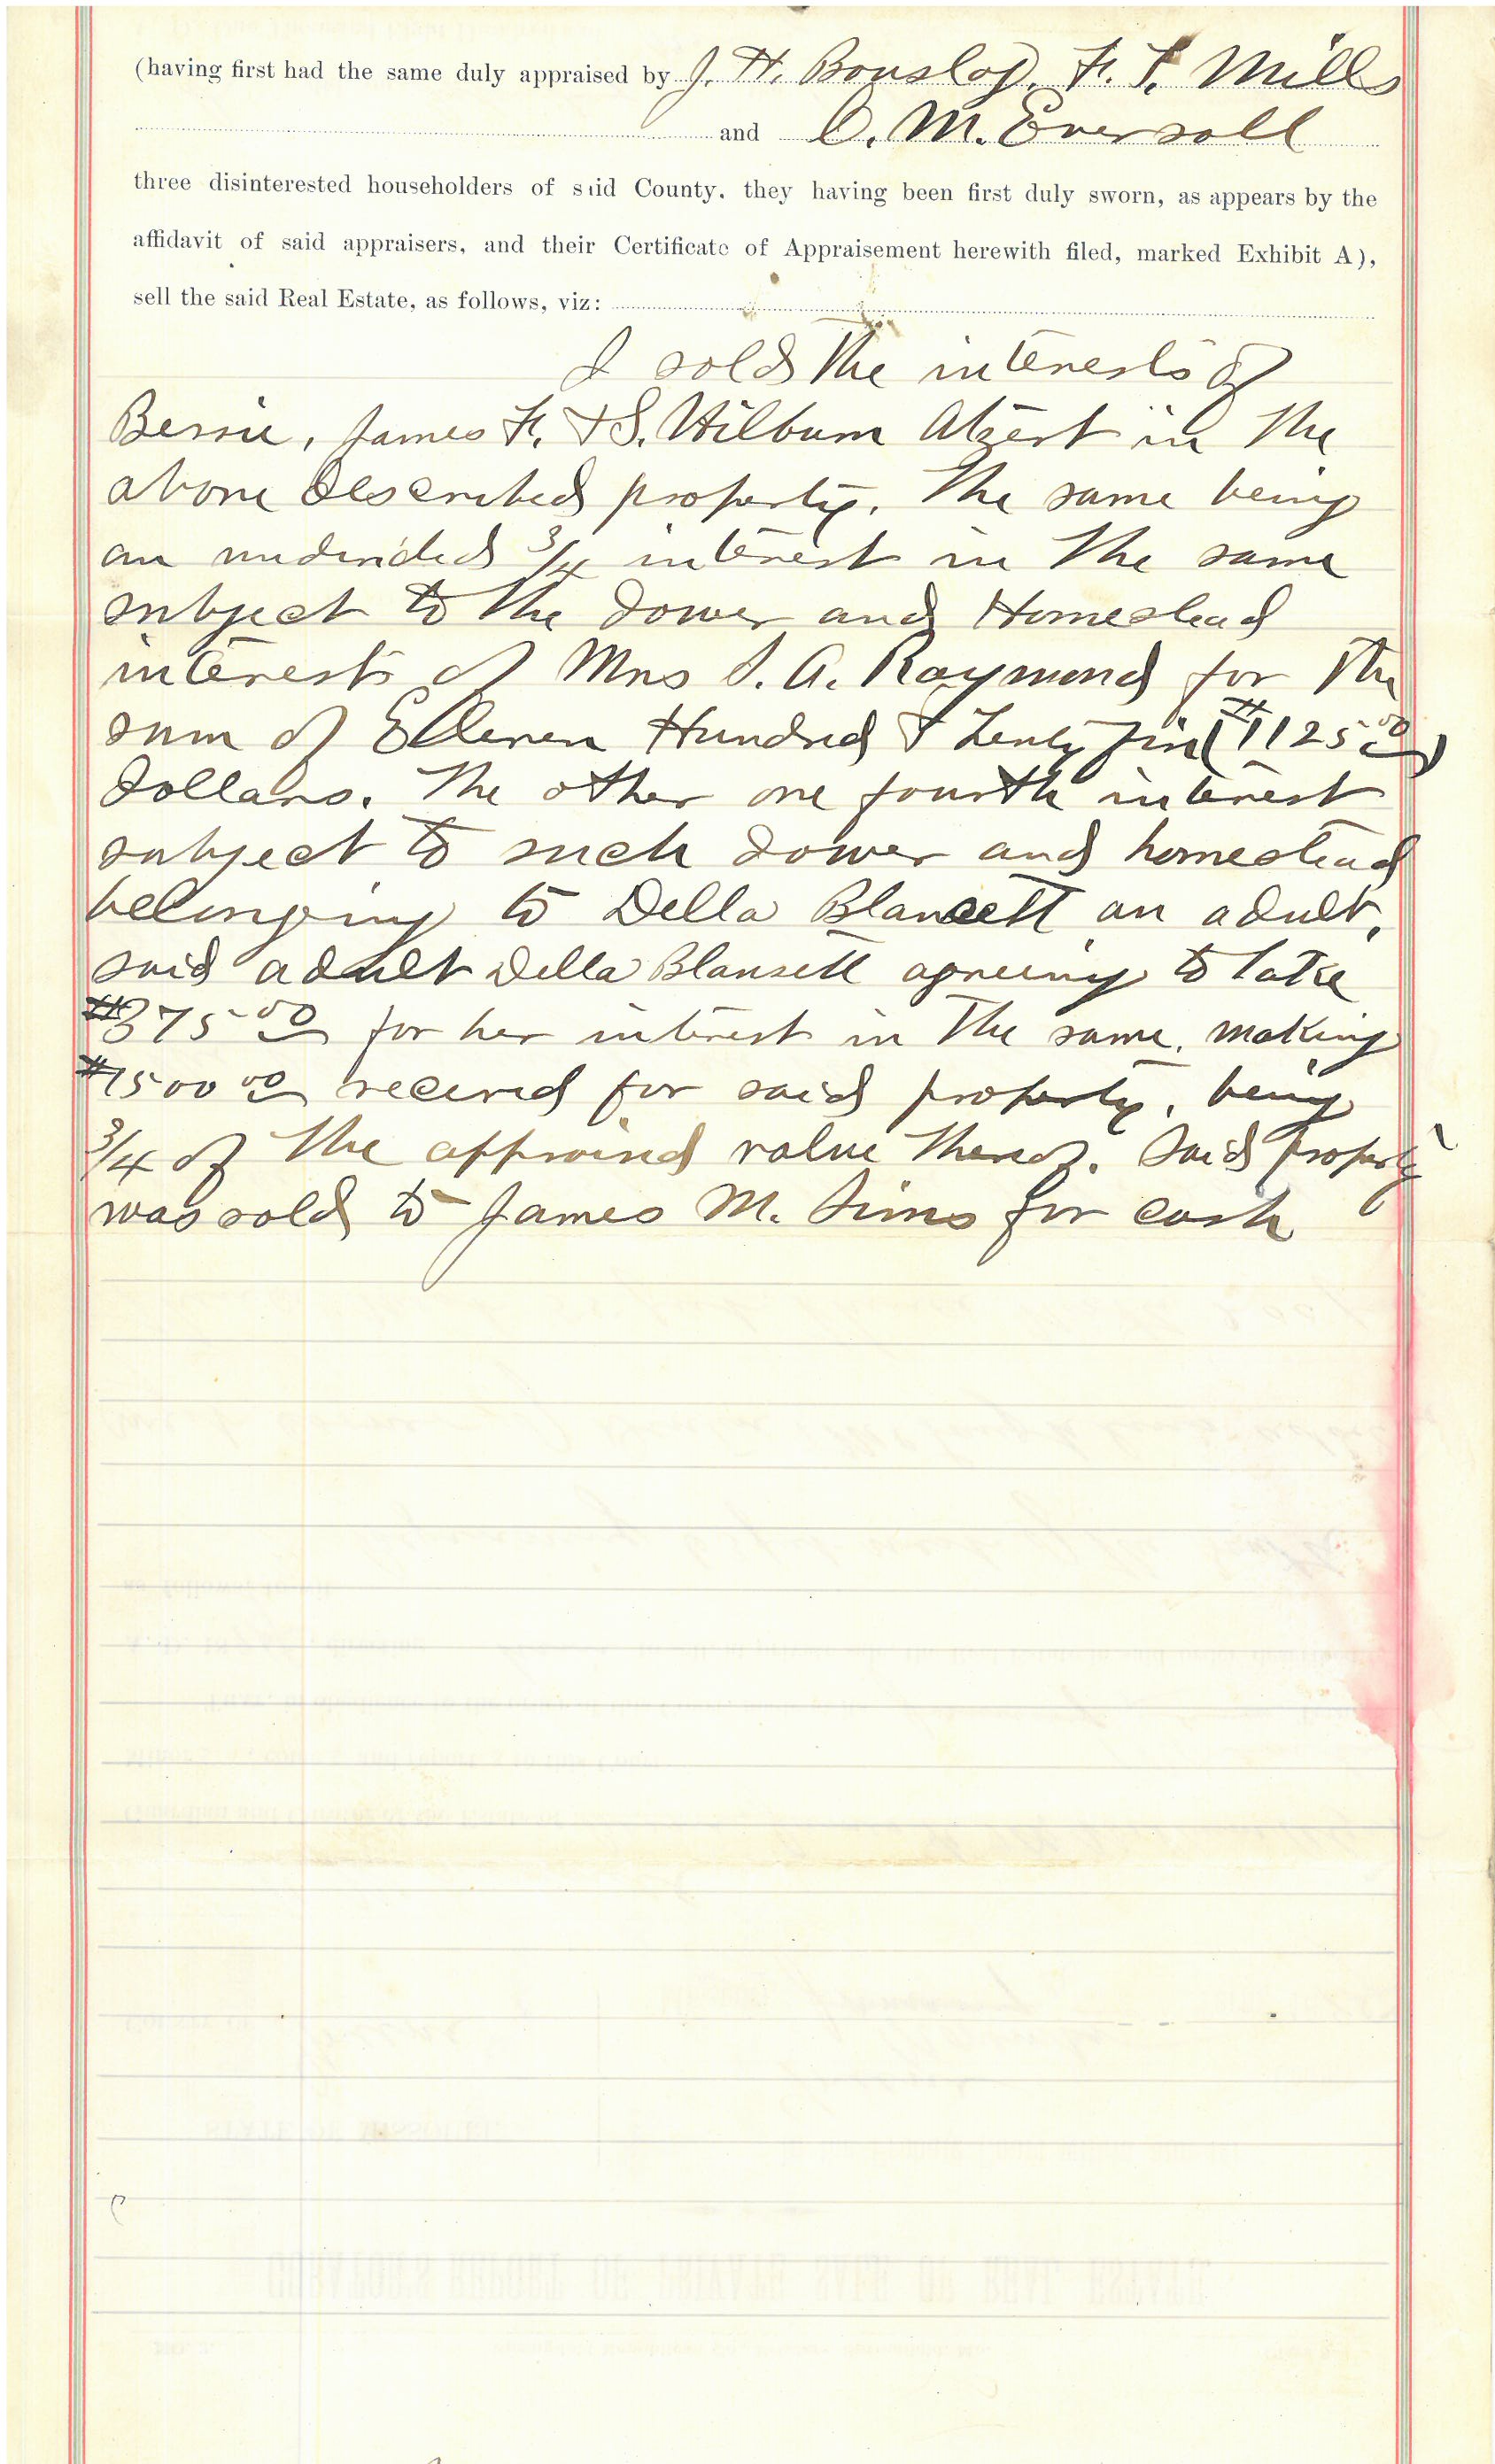 (having first had the same duly appraised by J. H. Bouslog, F. T. Mills
and O. M. Eversoll
three disinterested householders of said County, they having been first duly sworn, as appears by the
affidavit of said appraisers, and their Certificate of Appraisement herewith filed, marked Exhibit A),
sell the said Real Estate, as follows, viz:
I sold the interests of
Bessie, James F. & S. Wilburn Alzert in the
above described property. The same being
an undivided 3/4 interest in the same
subject to the dower and Homestead
interests of Mrs S. A. Raymond for the
sum of Elleven Hundred & Twenty five ($1125 00)
dollars. The other one fourth interest
subject to such dower and homestead
belonging to Della Blansett an adult,
said adult Della Blansett agreeing to take
$375 00 for her interest in the same, making
$1500 00 received for said property, being
3/4 of the appraised value thereof. Said property
was sold to James M. Sims for cash